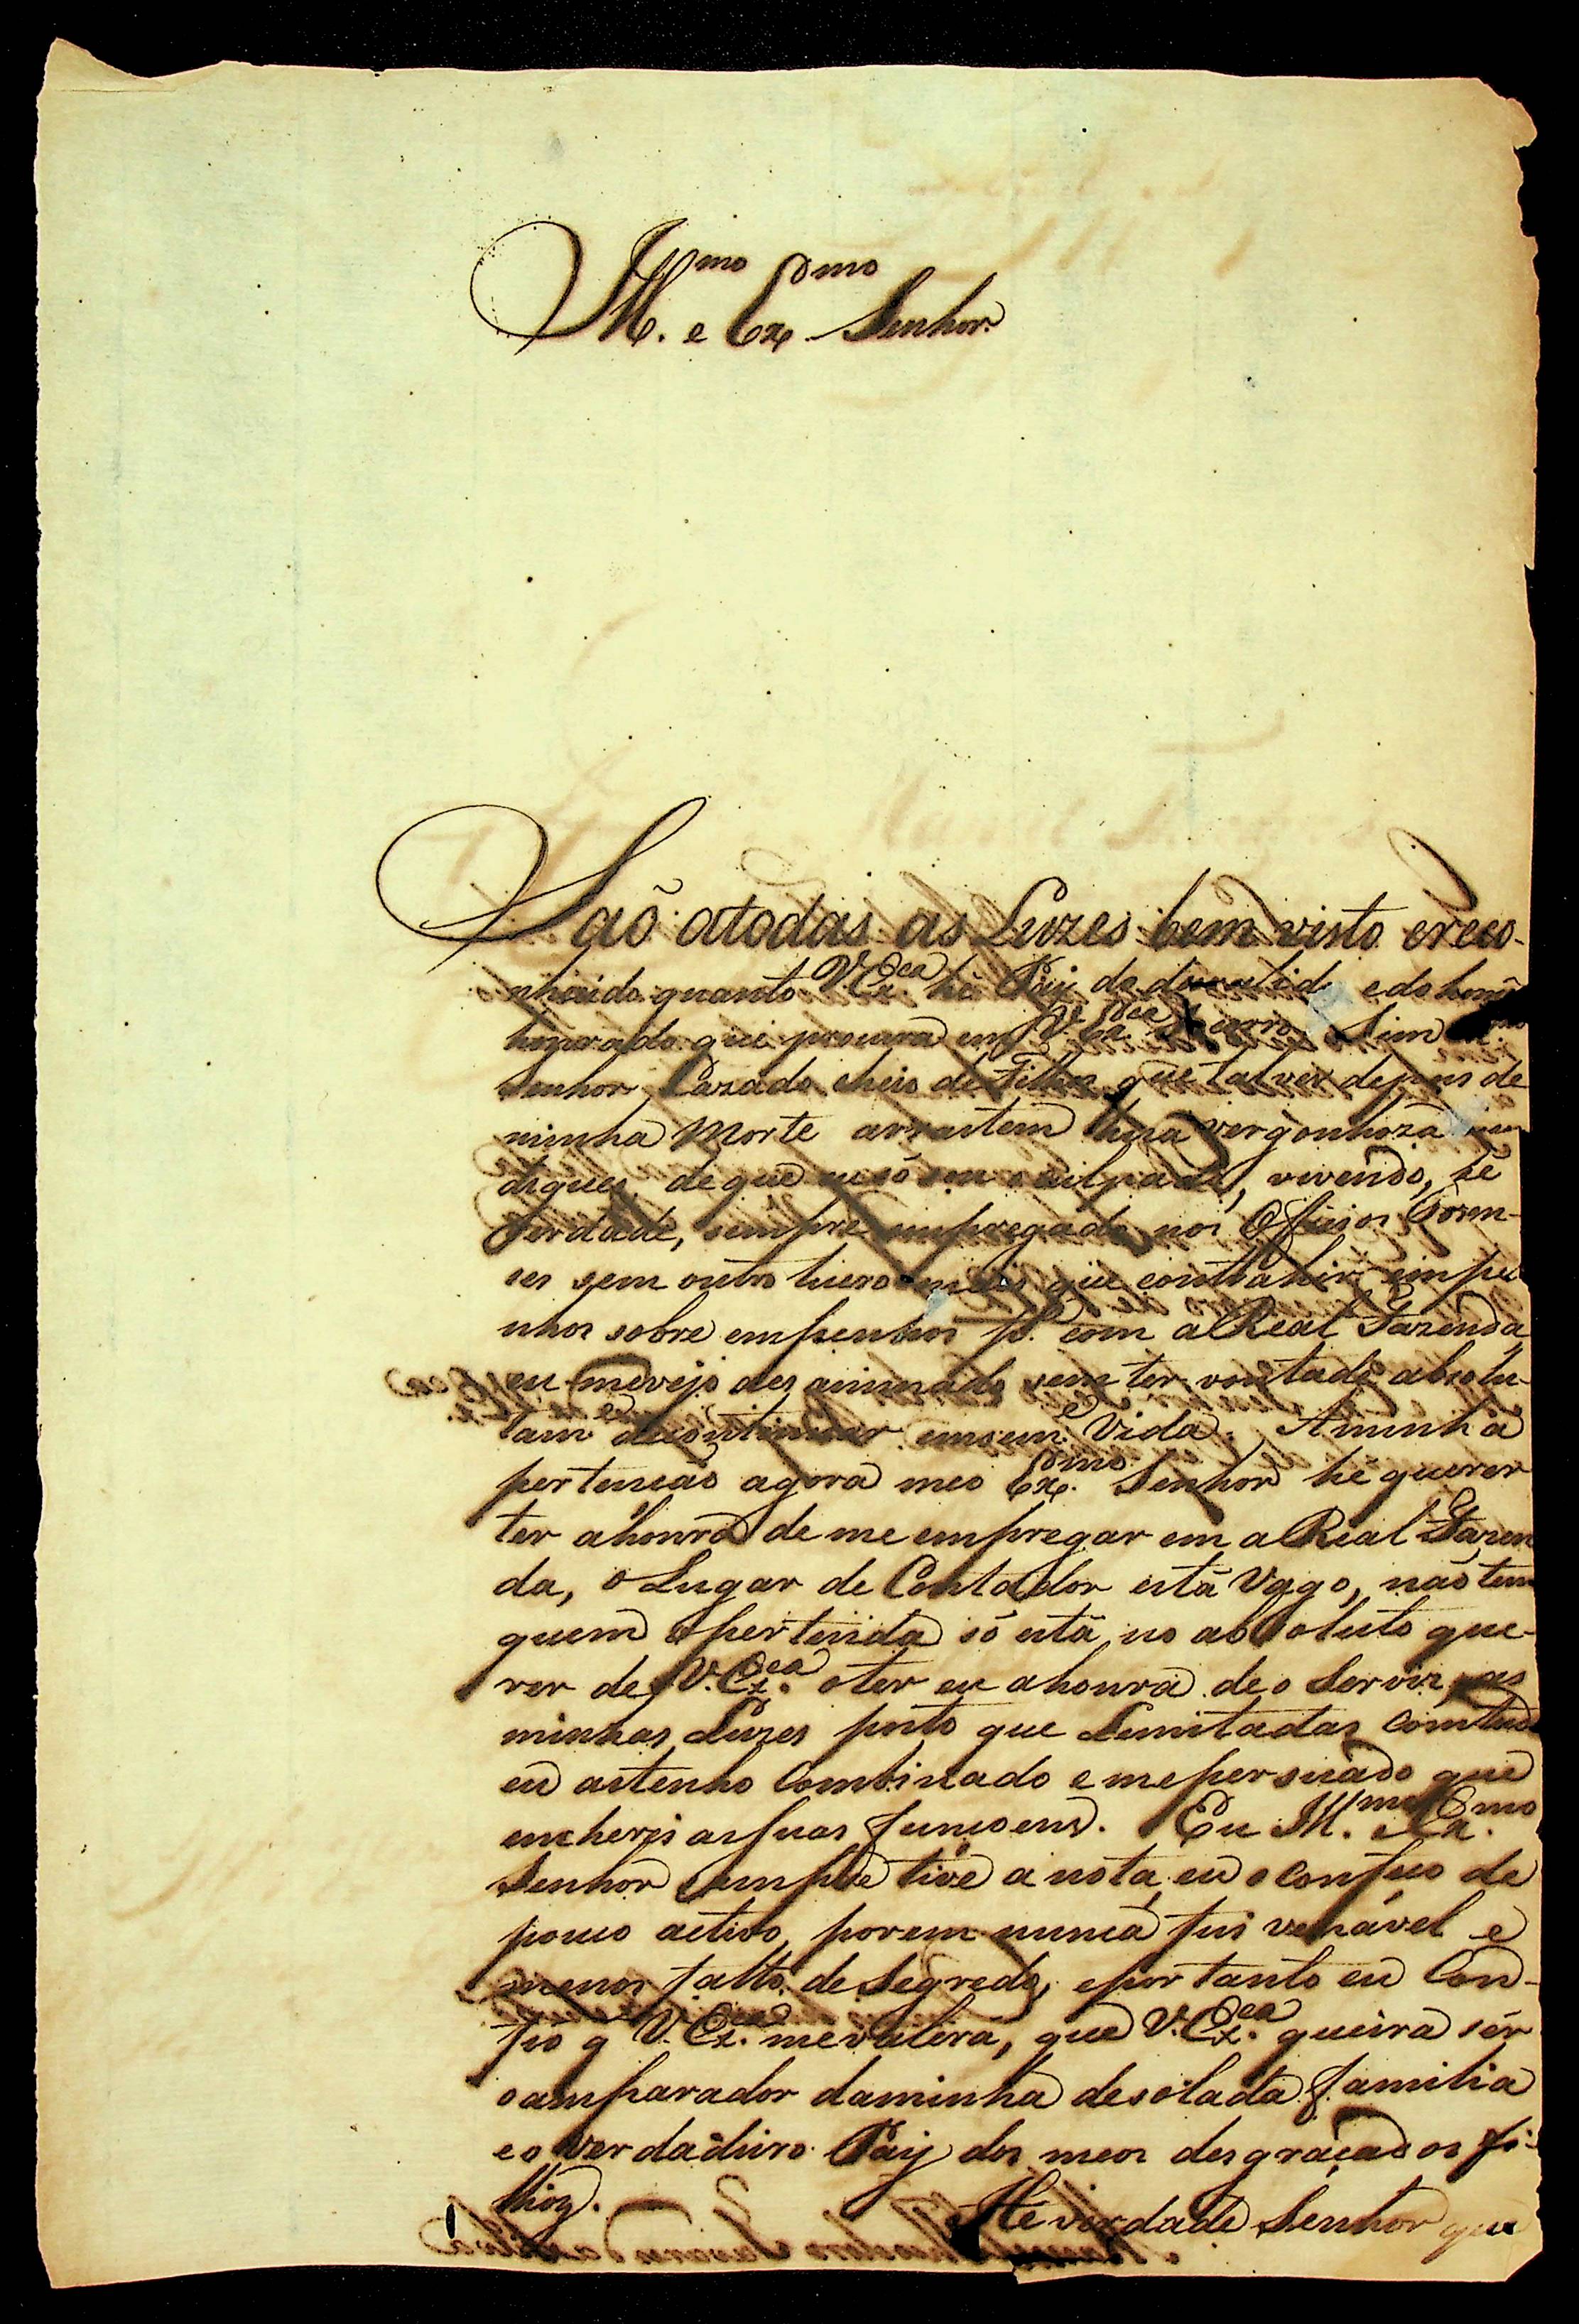 Ill.mo e Ex.mo Senhor.
Saõ atodas as Luzes bem visto ereco-
nhecido quanto V. Ex.ca he Pay do desvalido e do homẽ
honrado que procura em V. Ex.ca Sim
Senhor, Cazado cheio de Filhos, que talvez depois de
minha Morte arrastem hua vergonhoza
deque só sou culpado, vivendo, hé
verdade, sempre empregado nos Officios Foren-
ses sem outro lucro mais que contrahir empe
nhos sobre empenhos p.ª com aReal Fazenda,
eu mevejo desanimado sem ter vontade absolu-
tam.e decontinuar em sem.e Vida. Aminha
pertençaõ agora meo Ex.mo Senhor hé querer
ter ahonra de me empregar em aReal Fazen
da, o Lugar de Contador está Vago, naõ tem
quem opertenda só está no absoluto que-
rer de V. Ex.ca oter eu ahonra de o Servir, as
minhas Luzes posto que Lemitadas comtudo
eu astenho Combinado e mepersuado que
encherei assuas funçoens. Eu Ill.mo e Ex.mo
Senhor sempre tive a nota, eu o confeço de
pouco activo, porem nunca fui venável e
menos falto de Segredo, eportanto eu Con-
fio q V. Ex.ca mevalera, que V. Ex.ca queira sér
oamparador daminha desolada familia
eo verdadeiro Pay dos meos desgraçados fi-
lhos. He verdade Senhor que